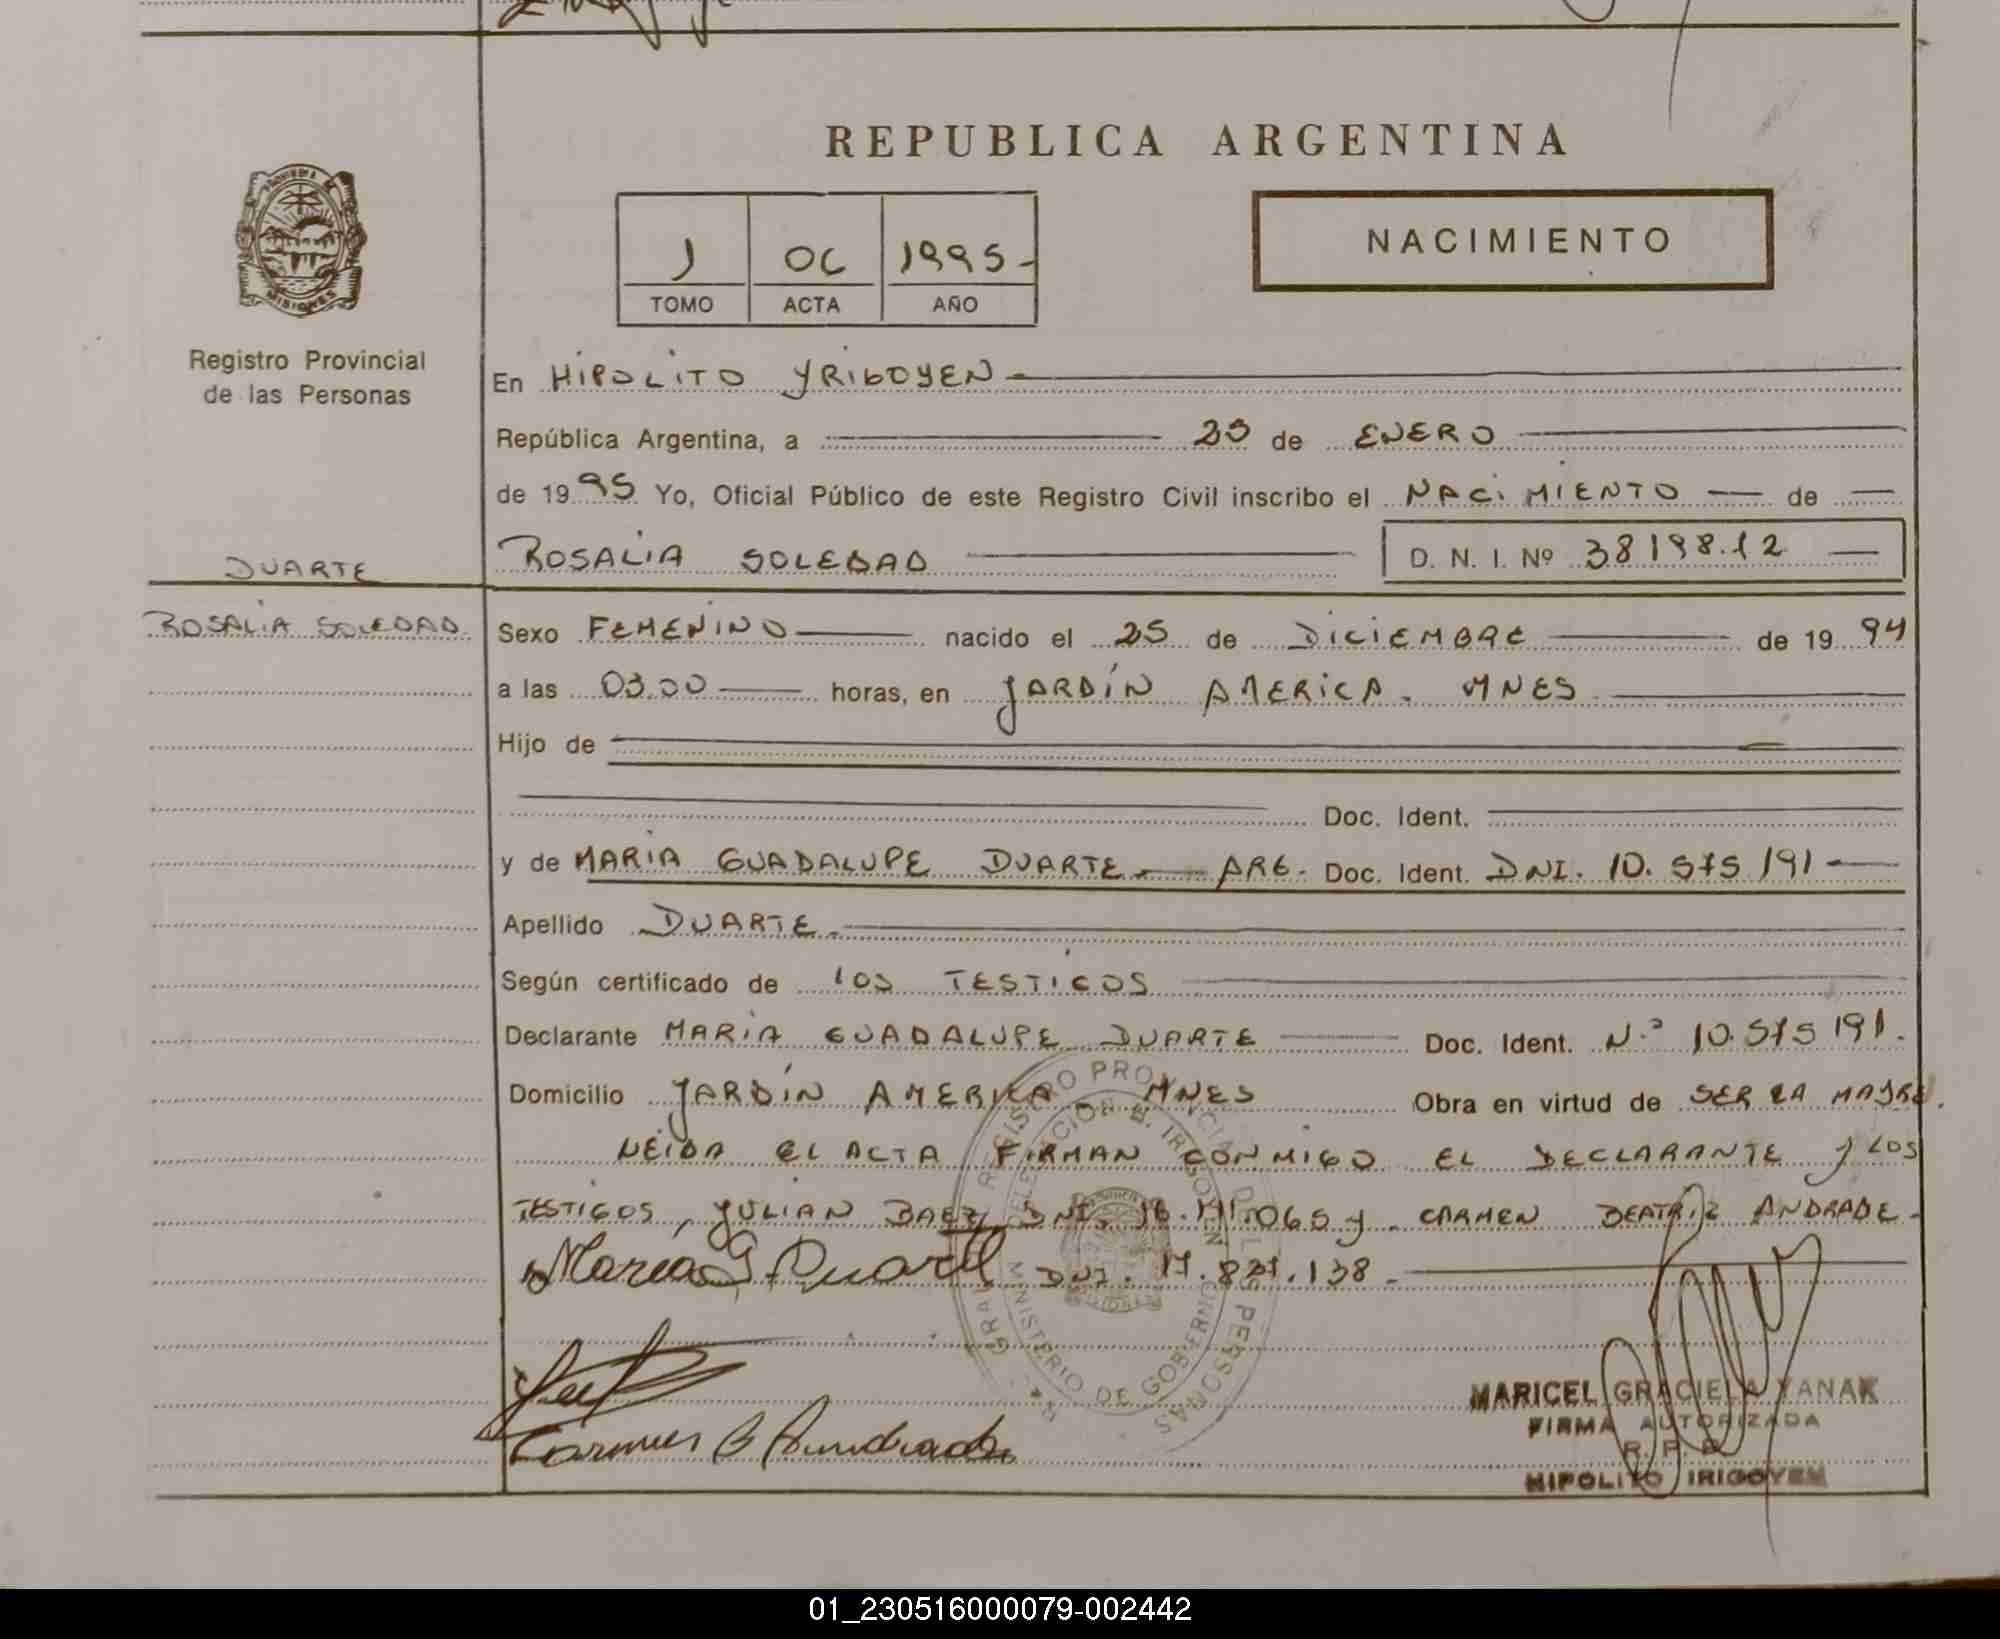 REPUBLICA ARGENTINA
PROVINCIA DE
MISIONES
Registro Provincial
de las Personas
1 06 1995-
TOMO ACTA AÑO
NACIMIENTO
En HIPOLITO YRIGOYEN
República Argentina, a 23 de ENERO
de 1995 Yo, Oficial Público de este Registro Civil inscribo el NACIMIENTO de
DUARTE
ROSALIA SOLEDAD
D. N. I. Nº 38198.12
ROSALIA SOLEDAD
Sexo FEMENINO nacido el 25 de DICIEMBRE de 1994
a las 03.00 horas, en JARDIN AMERICA. MNES
Hijo de
Doc. Ident.
y de MARIA GUADALUPE DUARTE ARG. Doc. Ident. DNI. 10.575 191
Apellido DUARTE
Según certificado de LOS TESTIGOS
Declarante MARIA GUADALUPE DUARTE Doc. Ident. N.º 10.575 191.
Domicilio JARDIN AMERICA MNES Obra en virtud de SER LA MADRE.
LEIDA EL ACTA FIRMAN CONMIGO EL DECLARANTE y LOS
TESTIGOS, JULIAN BAEZ DNI. 16. 065 y CARMEN BEATRIZ ANDRADE-
Maria G Duarte DNI. 17. 138
REGISTRO PROVINCIAL DE LAS PERSONAS
DELEGACION H. IRIGOYEN
MINISTERIO DE GOBIERNO
Carmen B Andrade
MARICEL GRACIELA YANAK
FIRMA AUTORIZADA
R. P. P.
HIPOLITO IRIGOYEN
01_230516000079-002442